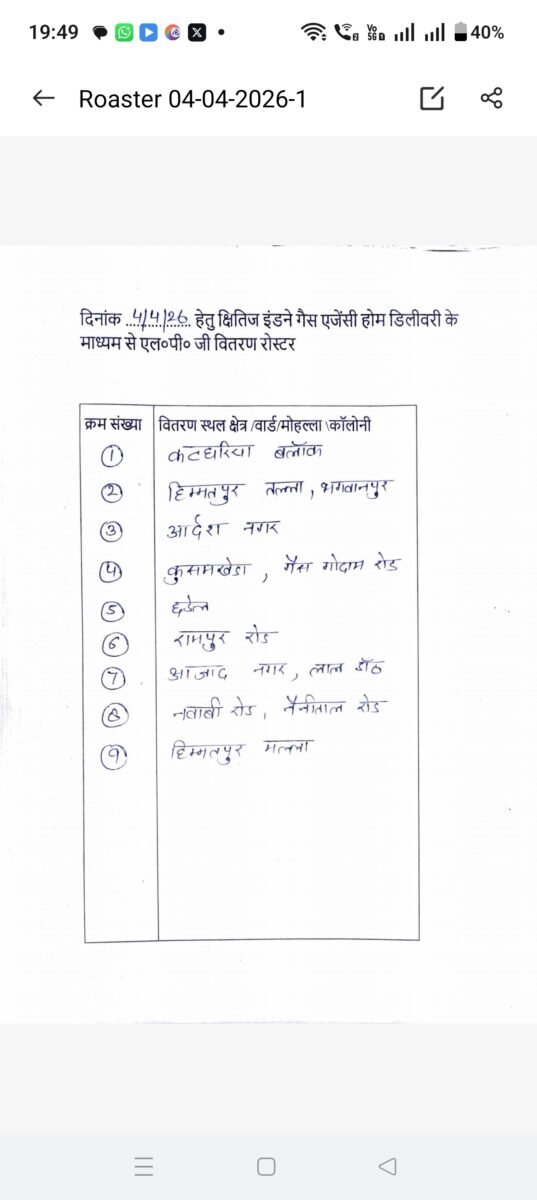 19:49
Vo
5G
2
40%
Roaster 04-04-2026-1
दिनांक ..4/4/26.. हेतु क्षितिज इंडने गैस एजेंसी होम डिलीवरी के
माध्यम से एल०पी० जी वितरण रोस्टर
क्रम संख्या वितरण स्थल क्षेत्र /वार्ड/मोहल्ला \कॉलोनी
1 कटघरिया ब्लॉक
2 हिम्मतपुर तल्ला, भगवानपुर
3 आर्दश नगर
4 कुसमखेडा, गैस गोदाम रोड
5 छडेल
6 रामपुर रोड
7 आजाद नगर, लाल डॉठ
8 नवाबी रोड, नैनीताल रोड
9 हिम्मतपुर मल्ला